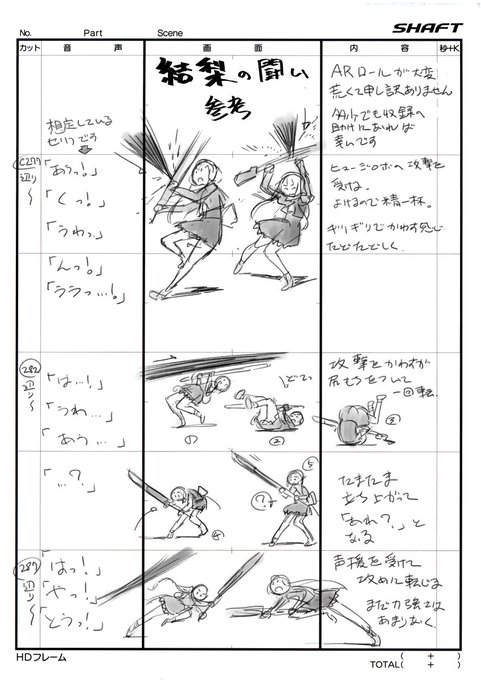 SHAFT
No. Part Scene
カット 音声 画面 内容 秒+K
結梨の闘い
参考
ARロールが大変
荒くて申し訳ありません
多少でも収録の
助けになれば
幸いです
想定している
セリフです
C277
辺り〜
「あうっ!」
「くっ!」
「うわっ」
「んっ!」
「ううっ…!」
ヒュージロボの攻撃を
受ける。
よけるので精一杯。
ギリギリでかわす感じ
たどたどしく
282
辺り〜
「は…!」
「うわ…」
「あう…」
どてっ
①
②
③
攻撃をかわすが
尻もちをついて
一回転
「…?」
④
⑤
?
たまたま
立ち上がって
「あれ?」と
なる
287
辺り〜
「はっ!」
「やっ!」
「とうっ!」
声援を受けて
攻めに転じる
まだ力強さは
あまりなく
HDフレーム
TOTAL( + )
( + )